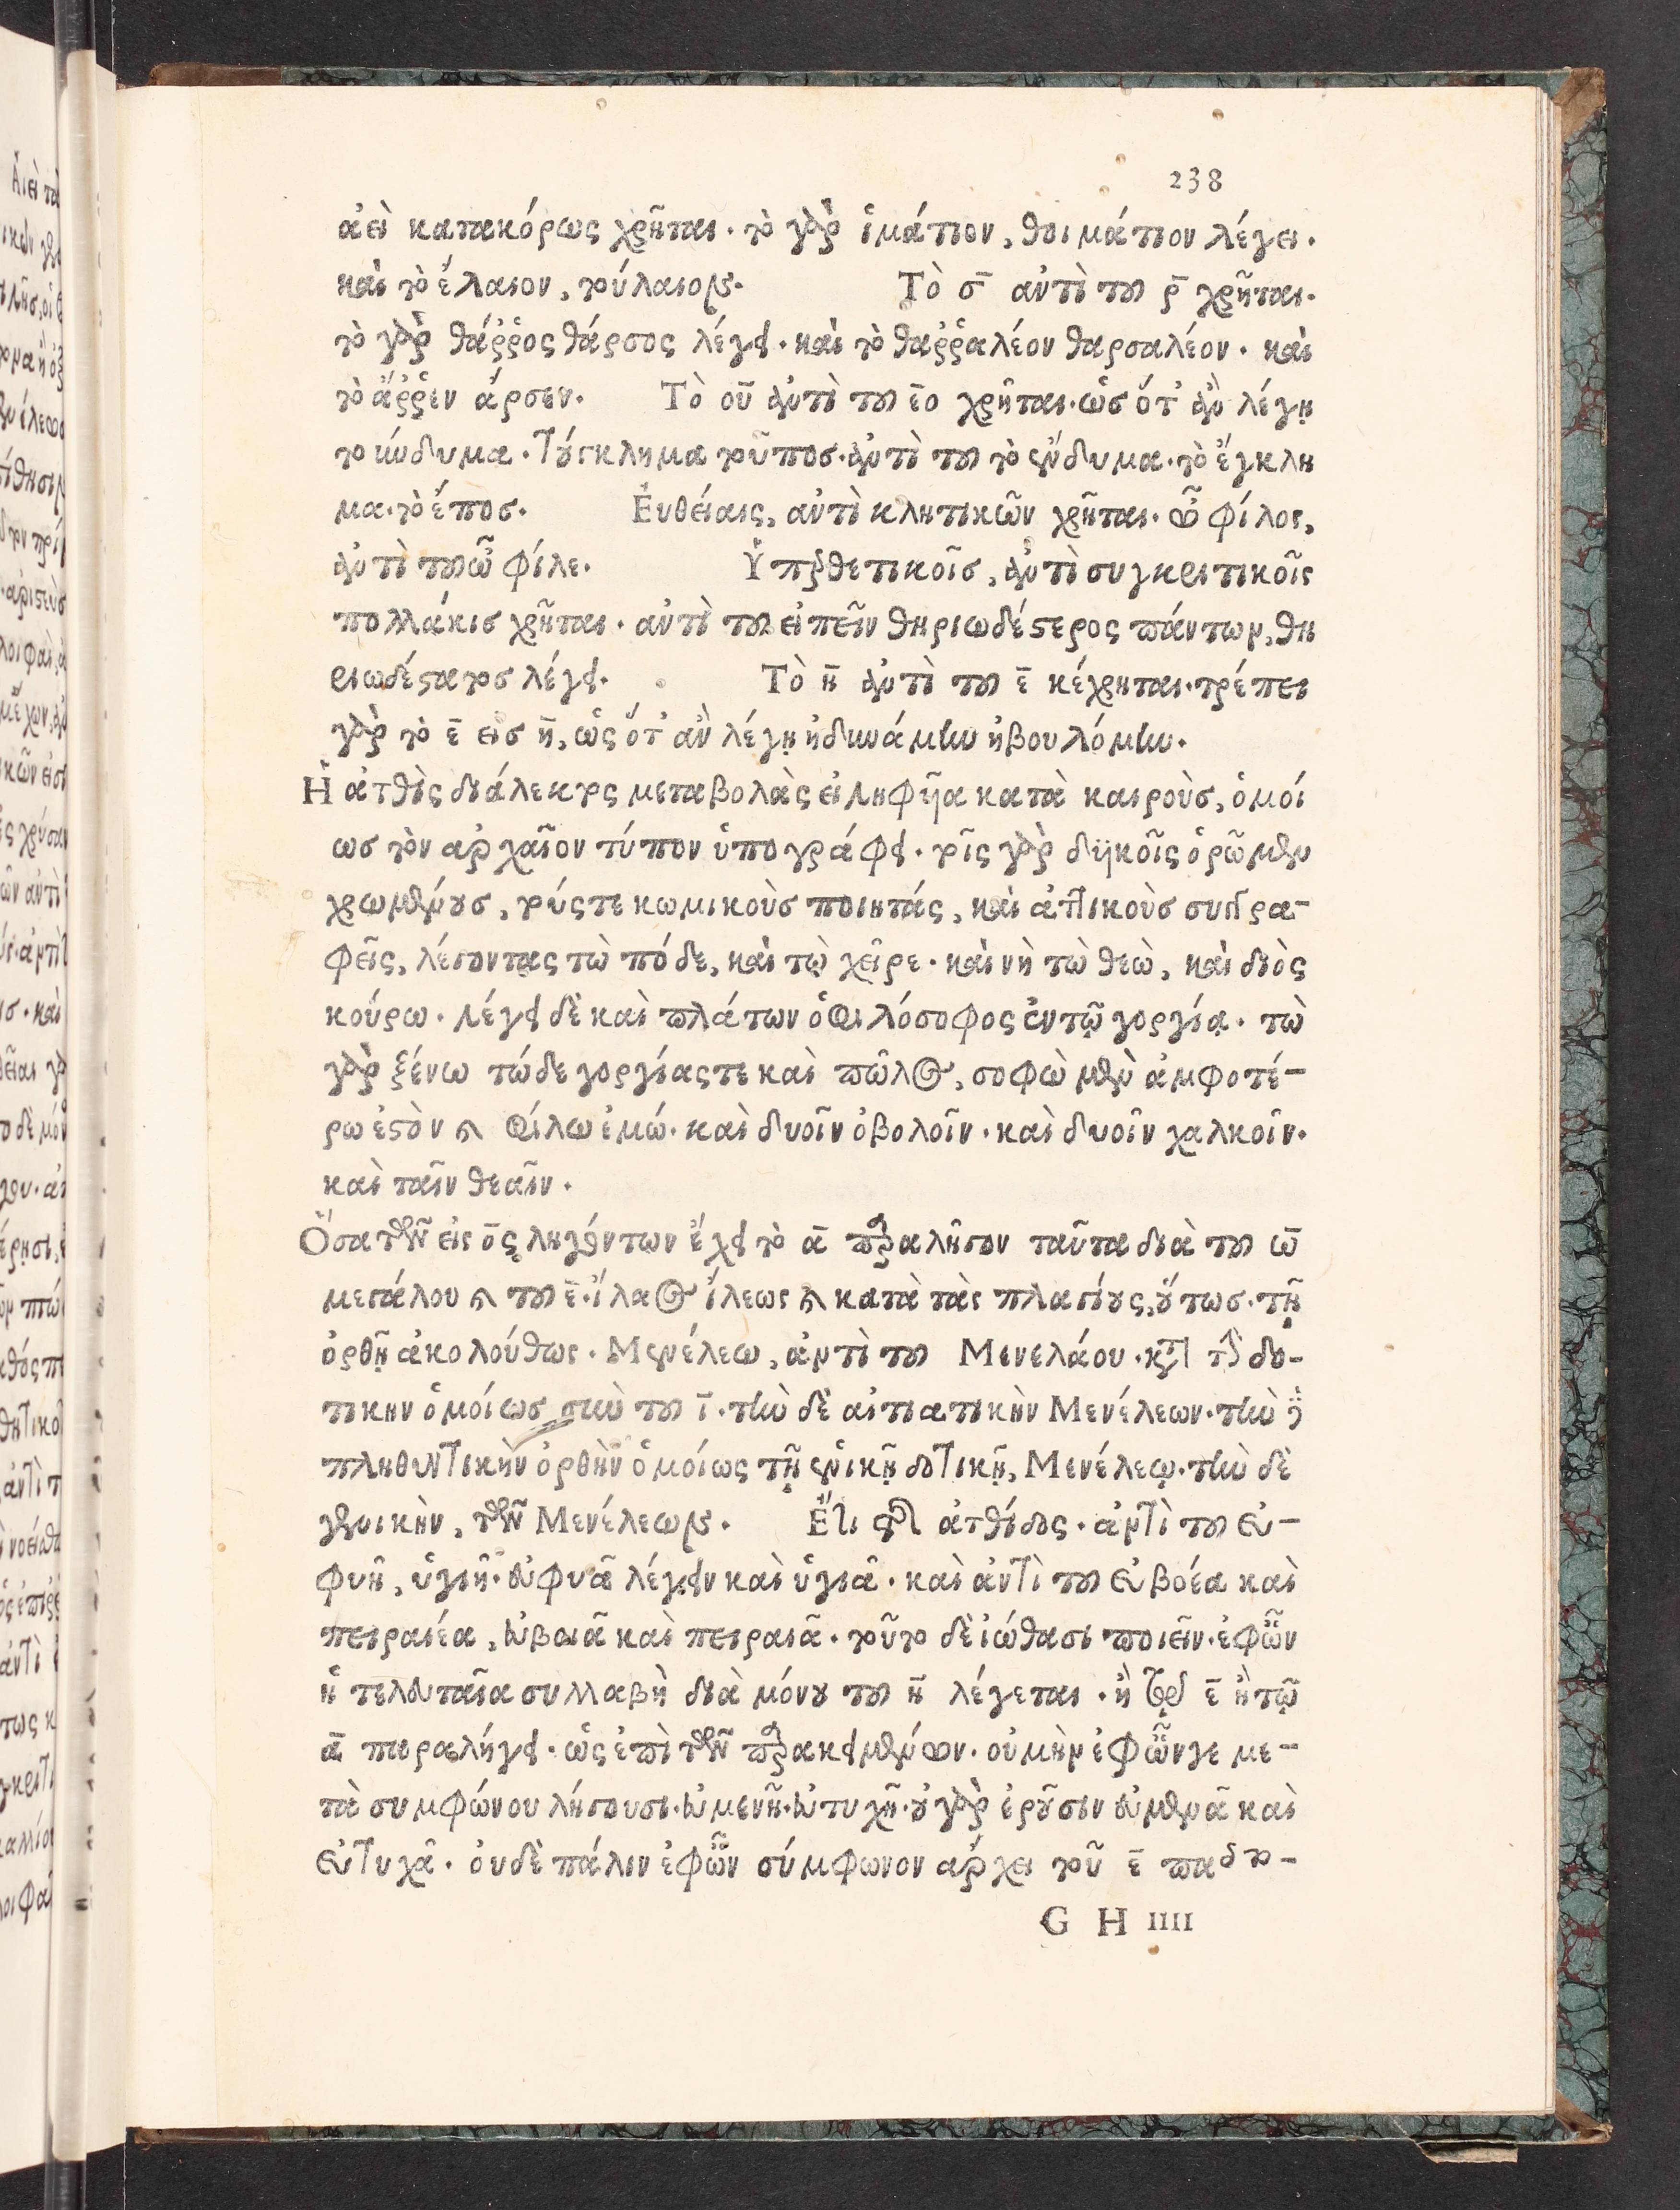 238
ἀεὶ κατακόρως χρῆται. τὸ γὰρ ἱμάτιον, θοιμάτιον λέγει.
καὶ τὸ ἔλαιον, τούλαιον. Τὸ σ̄ ἀντὶ τοῦ ρ̄ χρῆται.
τὸ γὰρ θάῤῥος θάρσος λέγει. καὶ τὸ θαῤῥαλέον θαρσαλέον. καὶ
τὸ ἄῤῥεν ἄρσεν. Τὸ οῦ ἀντὶ τοῦ ε̄ο χρῆται. ὡσ ὅτ' ἂν λέγῃ
τοὔνδυμα. τούγκλημα τοῦποσ. ἀντὶ τοῦ τὸ ἔνδυμα. τὸ ἔγκλη
μα. τὸ ἔποσ. Ἐυθείαις, ἀντὶ κλητικῶν χρῆται. ὦ φίλος,
ἀντὶ τοῦ ὦ φίλε. Ὑπερθετικοῖσ, ἀντὶ συγκριτικοῖς
πολλάκισ χρῆται. ἀντὶ τοῦ εἰπεῖν θηριωδέστερος πάντων, θη
ριωδέστατοσ λέγει. Τὸ η̄ ἀντὶ τοῦ ε̄ κέχρηται. τρέπει
γὰρ τὸ ε̄ εισ η̄, ὡς ὅτ' ἂν λέγῃ ἠδυνάμην ἠβουλόμην.
Ἡ ἀτθὶς διάλεκτος μεταβολὰς εἰληφῆα κατὰ καιροὺσ, ὁμοί
ωσ τὸν αρχαῖον τύπον ὑπογράφει. τοῖς γὰρ δυϊκοῖς ὁρῶμεν
χρωμένουσ, τούς τε κωμικοὺσ ποιητάς, καὶ ἀττικοὺσ συγγρα-
φεῖς, λέγοντας τὼ πόδε, καὶ τὼ χεῖρε. καὶ νὴ τὼ θεὼ, καὶ διὸς
κούρω. λέγει δὲ καὶ πλάτων ὁ φιλόσοφος ἐν τῷ γοργίᾳ. τὼ
γὰρ ξένω τώδε γοργίας τε καὶ πῶλος, σοφὼ μὲν ἀμφοτέ-
ρω ἐστὸν καὶ φίλω ἐμώ. καὶ δυοῖν ὀβολοῖν. καὶ δυοῖν χαλκοῖν.
καὶ ταῖν θεαῖν.
Ὅσα τῶν εἰς ο̄ς ληγόντων ἔχει τὸ ᾱ παραλῆγον ταῦτα διὰ τοῦ ω̄
μεγάλου καὶ τοῦ ε̄. ἵλαος ἵλεως καὶ κατὰ τὰς πλαγίους, οὕτωσ. τῇ
ὀρθῇ ἀκολούθως. Μενέλεω, ἀντὶ τοῦ Μενελάου. κατὰ τὴν δο-
τικην ὁμοίωσ σὺν τοῦ ῑ. τὴν δὲ αἰτιατικὴν Μενέλεων. τὴν δὲ
πληθυντικὴν ὀρθὴν ὁμοίως τῇ ἑνικῇ δοτικῇ, Μενέλεῳ. τὴν δὲ
γενικὴν, τῶν Μενέλεων. Ἔτι ἀτθίδος. ἀντὶ τοῦ εὐ-
φυῆ, ὑγιῆ. εὐφυᾶ λέγειν καὶ ὑγιᾶ. καὶ ἀντὶ τοῦ εὐβοέα καὶ
πειραιέα, εὐβοιᾶ καὶ πειραιᾶ. τοῦτο δὲ ἰώθασι ποιεῖν. ἐφ ὧν
ἡ τελευταῖα συλλαβὴ διὰ μόνου τοῦ η̄ λέγεται. ἢ ε̄ ἢ τῷ
ᾱ παραλήγει. ὡς ἐπὶ τῶν παρακειμένων. οὐ μὴν ἐφ ὧν γε με-
τὰ συμφώνου λήγουσι. εὐμενῆ. εὐτυχῆ. οὐ γὰρ ἐροῦσιν εὐμενᾶ καὶ
εὐτυχᾶ. ὀυδὲ πάλιν ἐφ ὧν σύμφωνον αρχει τοῦ ε̄
G H IIII